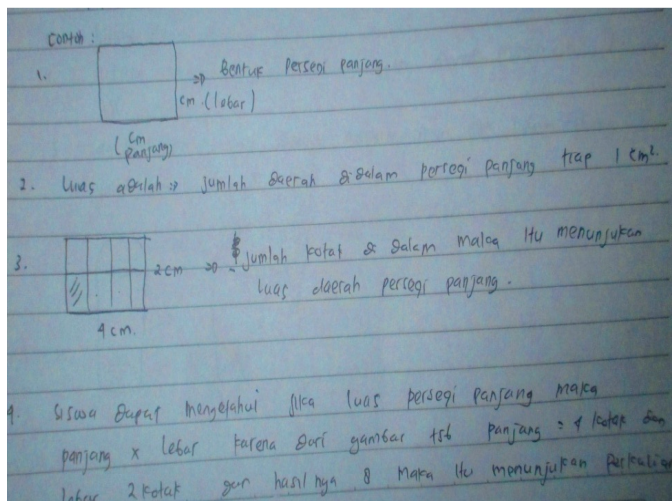 Contoh :
1. => Bentuk persegi panjang.
cm (lebar)
(cm
panjang)
2. Luas adalah => jumlah daerah di dalam persegi panjang tiap 1 cm².
3. 2 cm => jumlah kotak di dalam maka itu menunjukan
luas daerah persegi panjang.
4 cm.
4. Siswa dapat mengetahui jika luas persegi panjang maka
panjang x lebar karena dari gambar tsb panjang = 4 kotak dan
lebar 2 kotak dan hasilnya 8 maka itu menunjukan perkalian